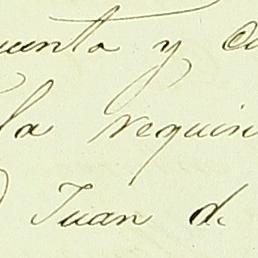 uenta y
la requir
Juan de